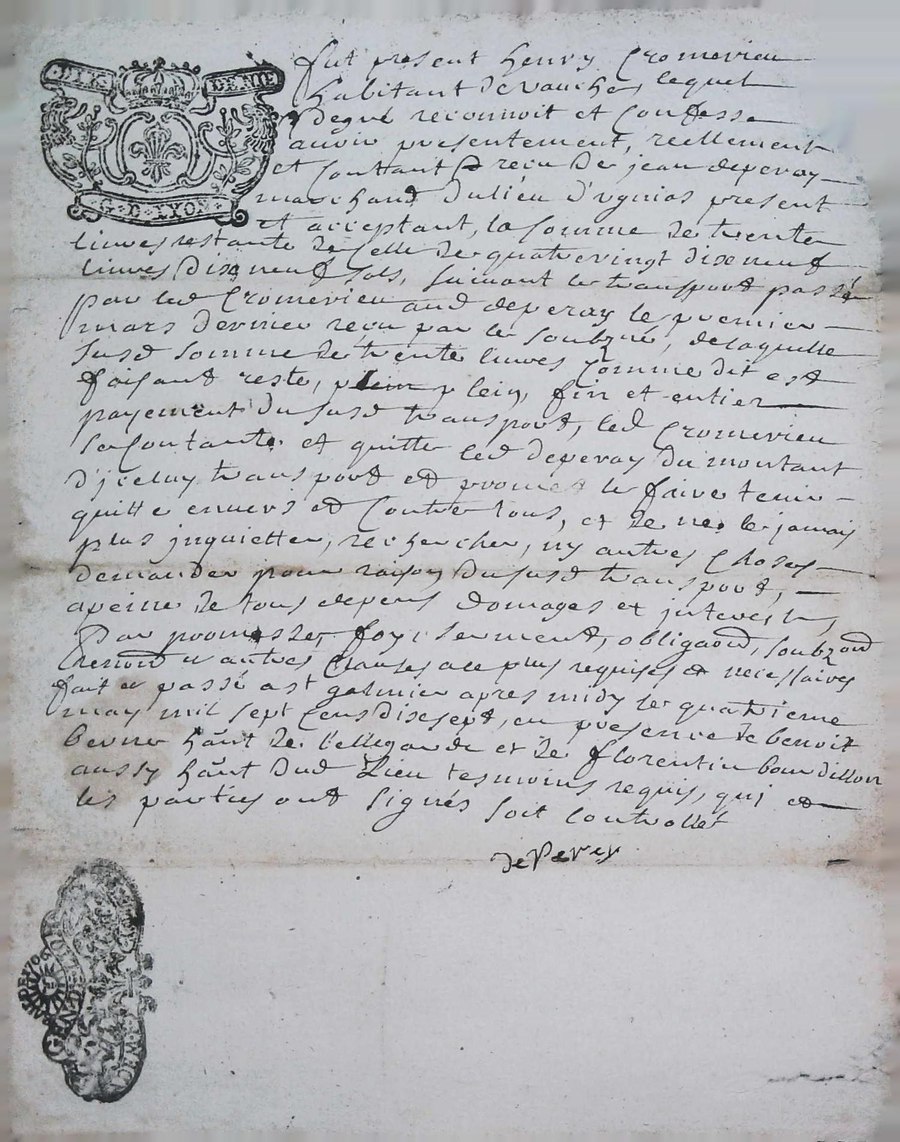 DIX DENIE
G. D. LYON
fut present henry Cromerieu
habitant de vauche, lequel
degré reconnoit et Confesse
auoir presentement, reellement
et Contant receu de jean deperay
marchand du lieu d'ugnias present
et acceptant, la somme de trente
liures restante de Celle de quatrevingt dixneuf
liures dixneuf sols, suiuant le transport passé
par led Cromerieu aud deperay le premier
mars dernier receu par le soubzné, de laquelle
susd somme de trente liures Comme dit est
faisant reste, plein, fin et entier
payement du susd transport, led Cromerieu
se Contante et quitte led deperay du montant
d'jceluy transport et promet le faire tenir
quitte enuers et Contre tous, et de ne le jamais
plus jnquietter, rechercher, ny autres Choses
demander pour raison du susd transport,
apeine de tous depens domages et jnterests,
Par promesses, foy, serment, obligaōn, soubzōn
Renonōn et autres Clauses a ce plus requises et necessaires
fait et passé a st galmier apres midy le quatrieme
may mil sept Cens disesept, en presence de benoit
hānt de bellegarde et de florentin
aussy hānt dud Lieu tesmoins requis, qui et
les parties ont signés soit Controllé
deperey
GEN DE